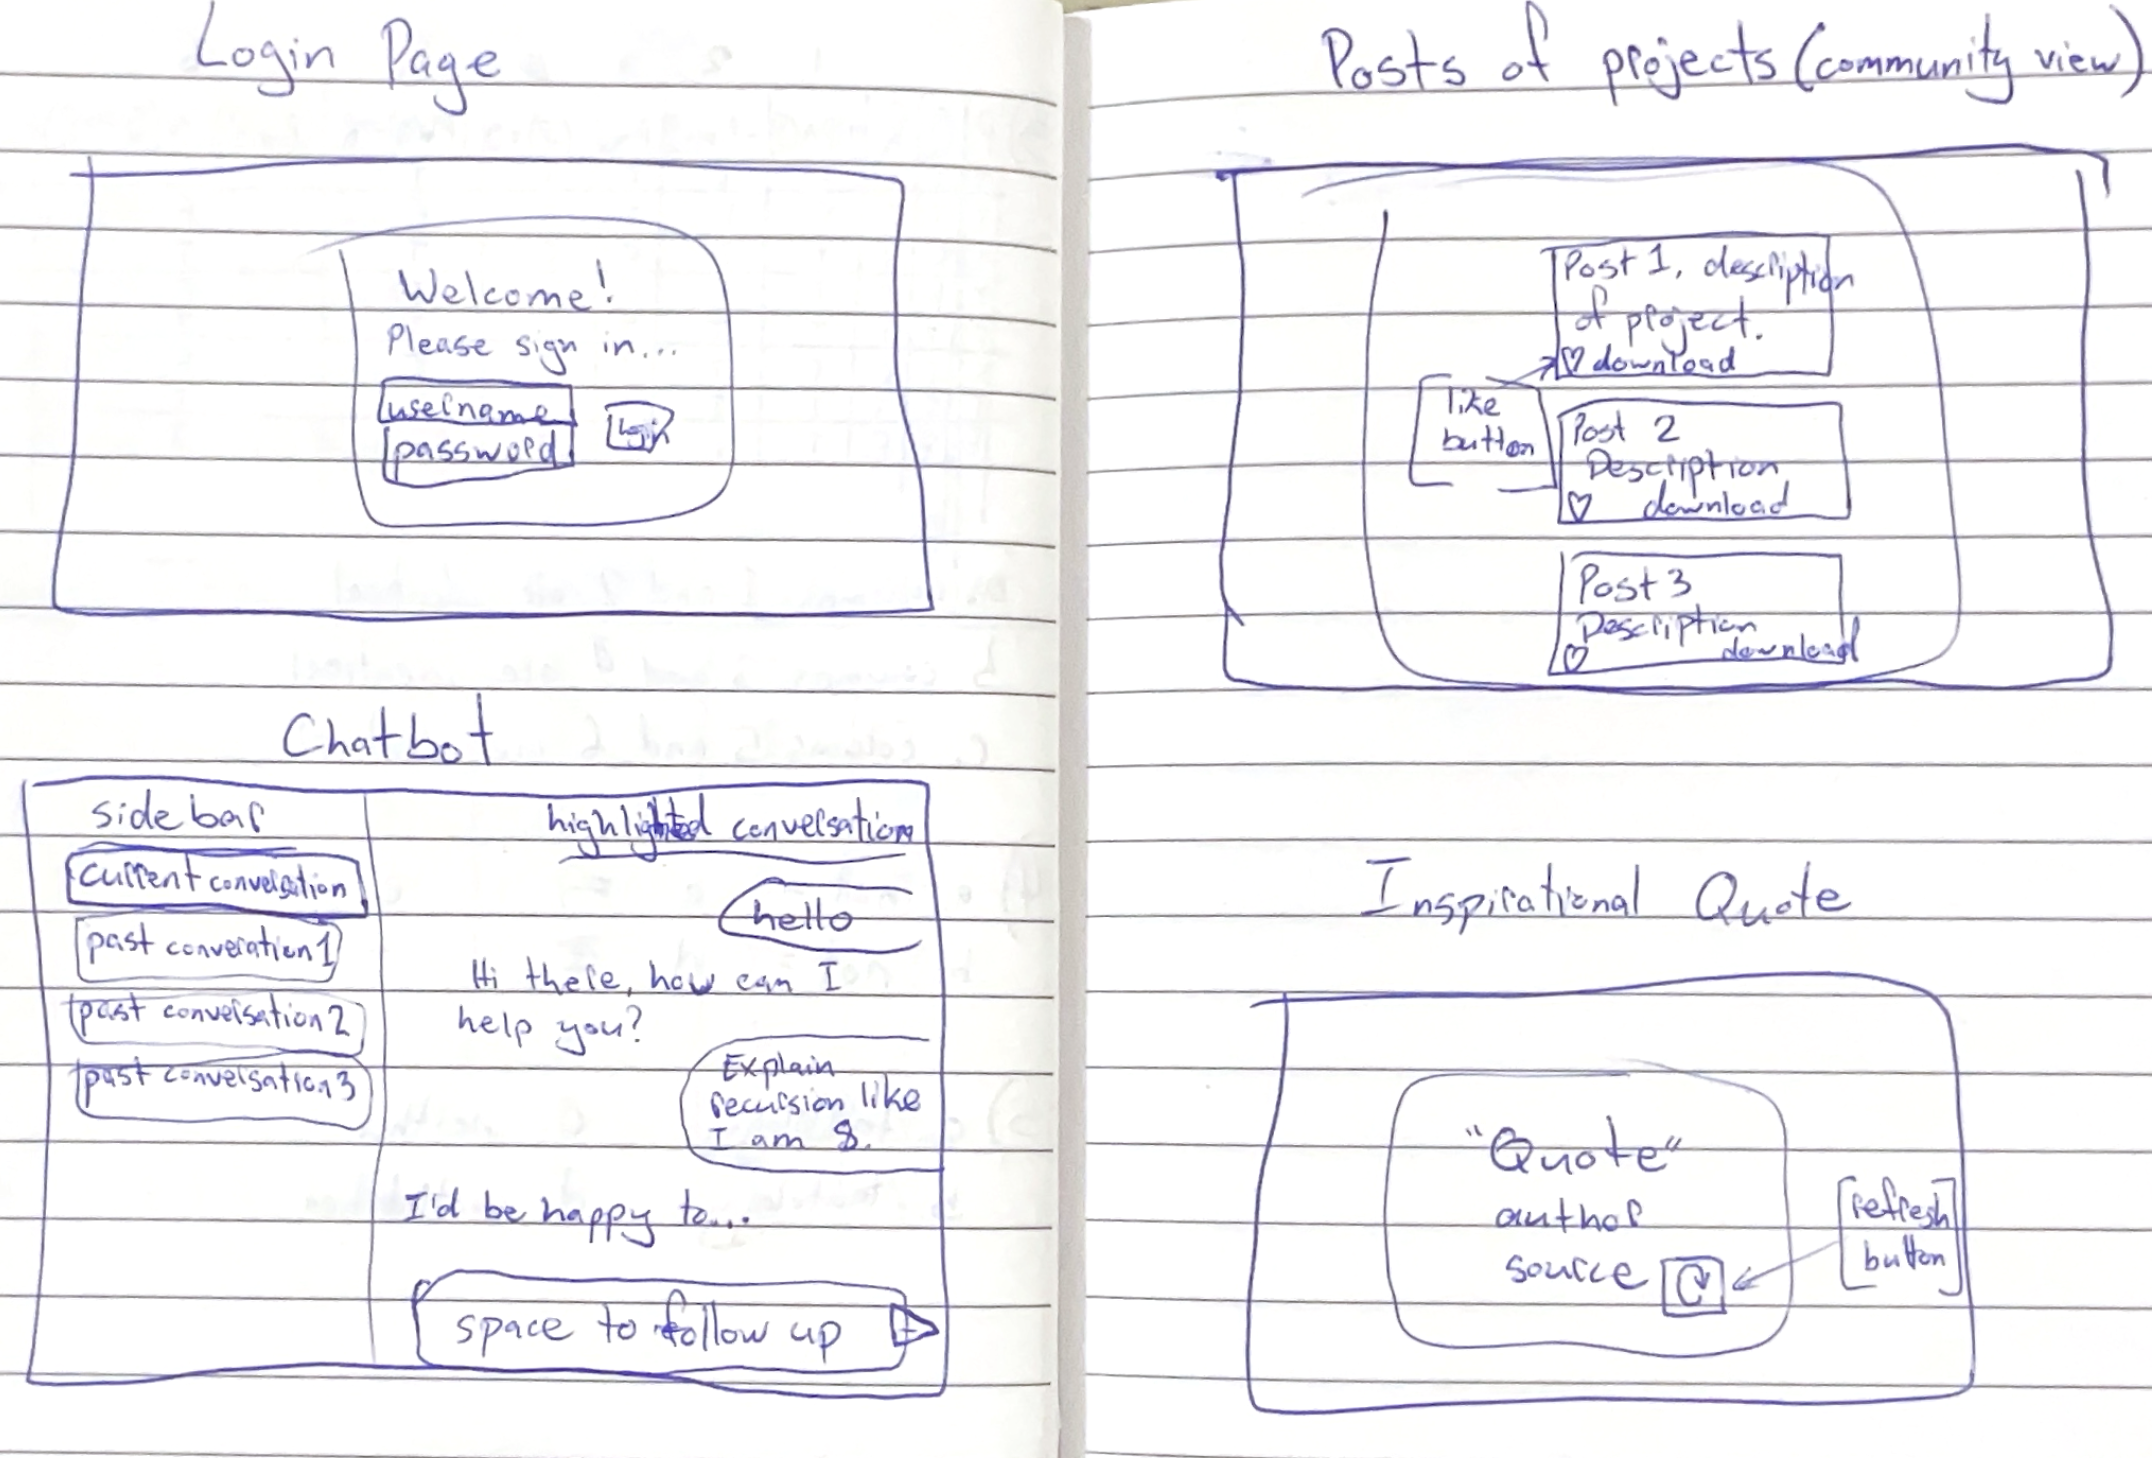 Login Page
Welcome!
Please sign in...
username
password
Login
Chatbot
side bar
current conversation
past converation 1
past conversation 2
past conversation 3
highlighted conversation
hello
Hi there, how can I
help you?
Explain
recursion like
I am 8.
I'd be happy to...
space to follow up
Posts of projects (community view)
Post 1, description
of project.
♡ download
like
button
Post 2
Description
♡ download
Post 3
Description
♡ download
Inspirational Quote
"Quote"
author
source
refresh
button